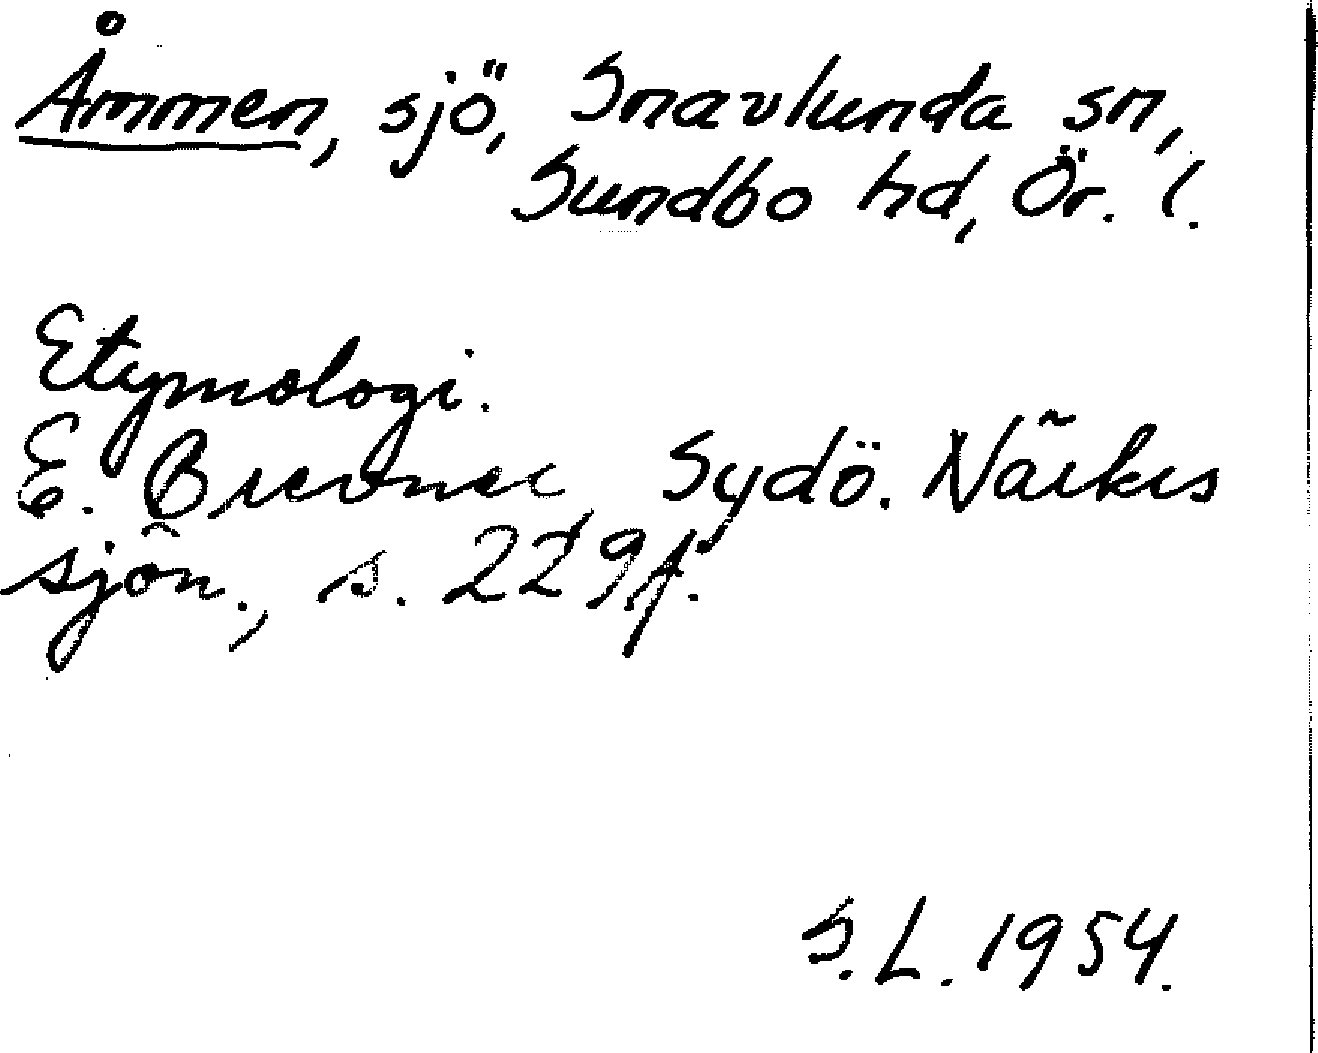 Åmmen, sjö, Snavlunda sn,
Sundbo hd, Ör. l.
Etymologi.
E. Brevner Sydö. Närkes
sjön., s. 229f.
S. L. 1954.